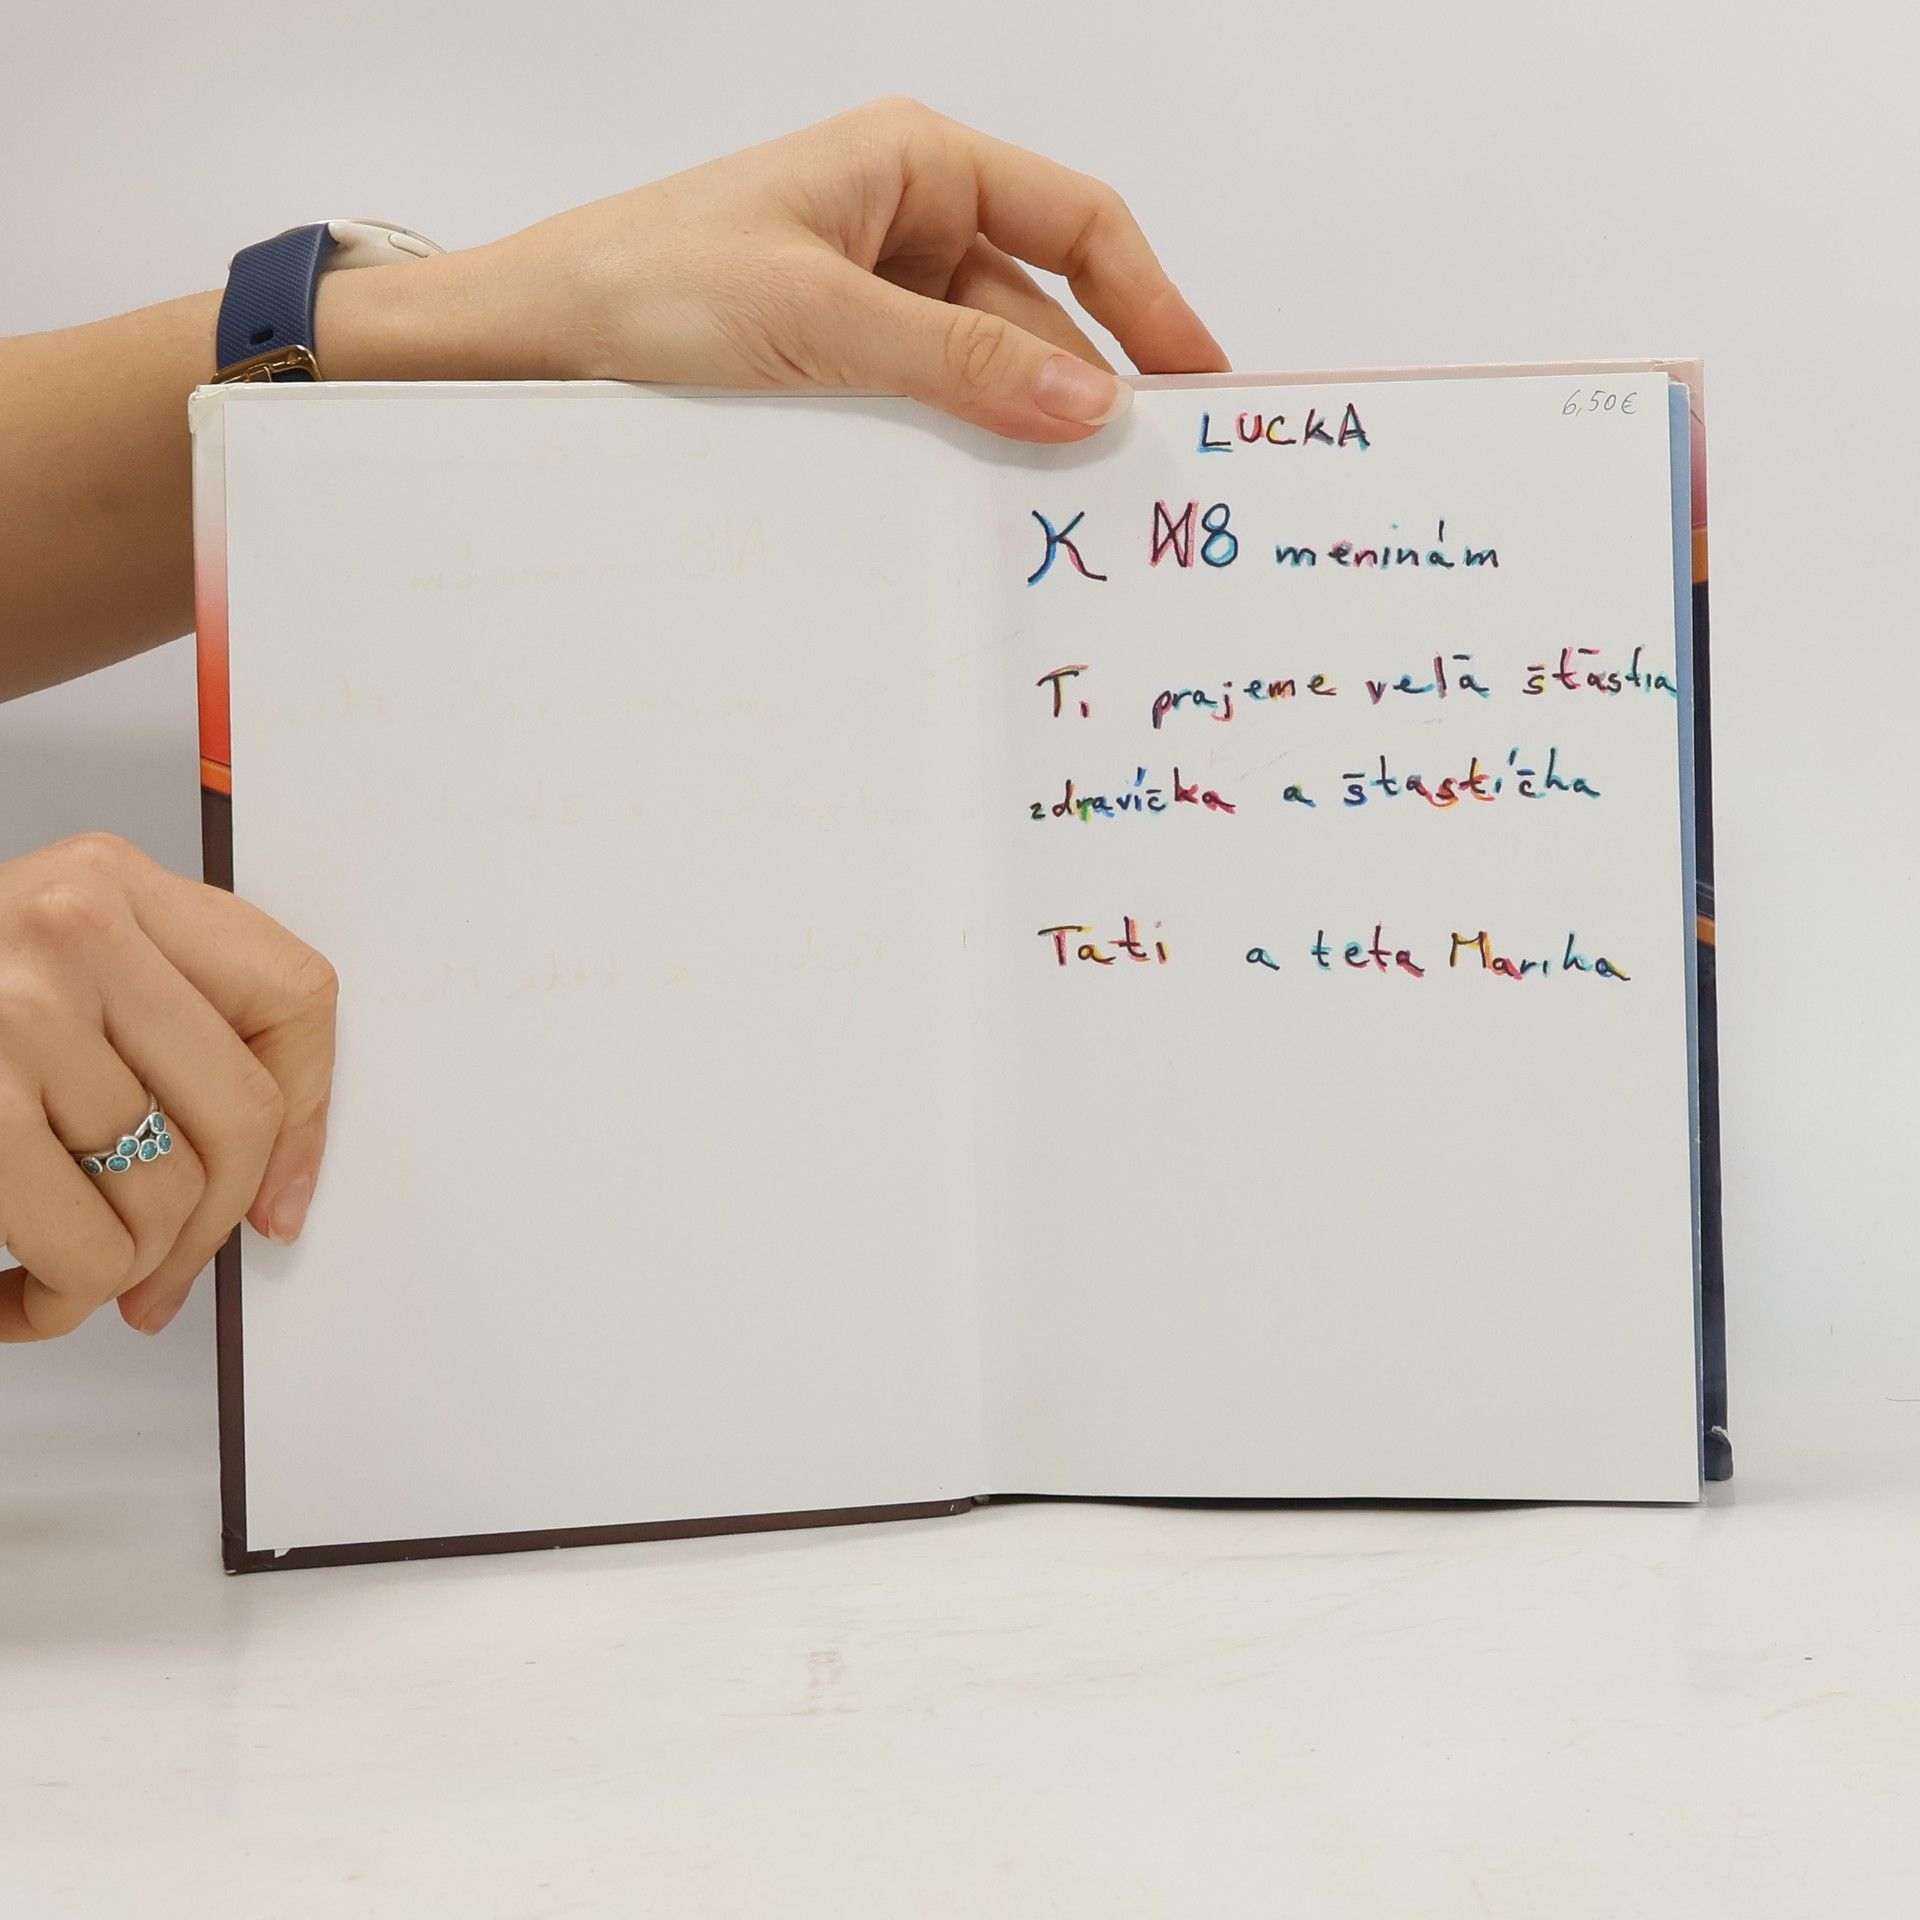 6,50€
LUCKA
K N8 meninám
Ti prajeme velā s̄t̄astia
zdravíc̄ka a s̄tastíc̄ka
Tati a teta Marika